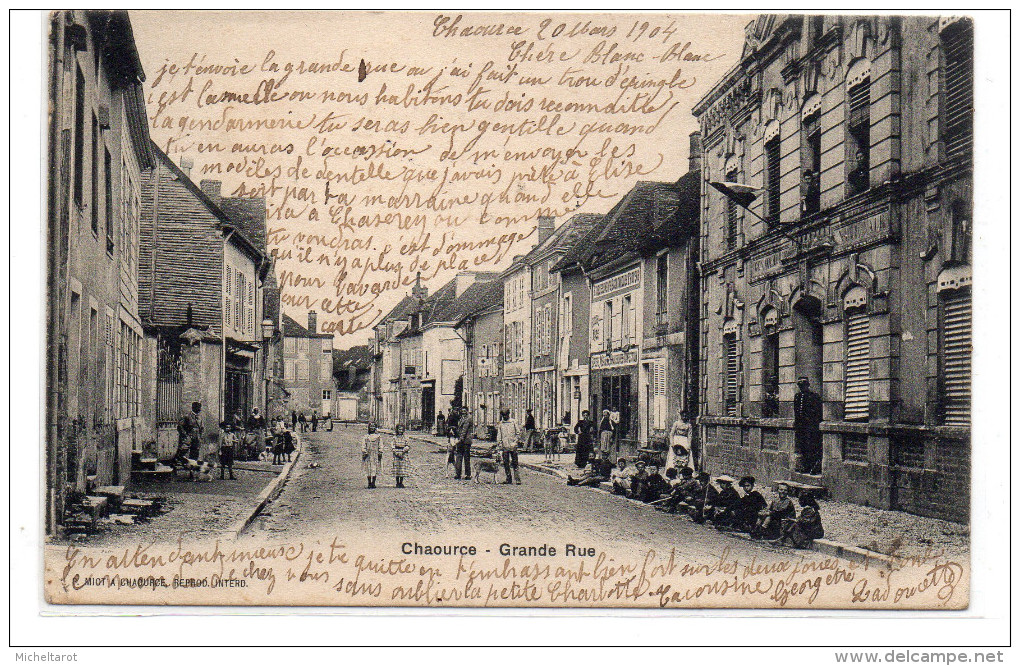 Chaource 20 Mars 1904
Chère Blanc-Blanc
je t'envoie la grande rue ou j'ai fait un trou d'épingle
c'est la melle ou nous habitons tu dois reconnaitre
la gendarmerie tu seras bien gentille quand
tu en auras l'occasion de m'envoyer les
modèles de dentelle que j'avais prêté à Elise
soit par ta marraine quand elle
ira à ou comme
tu voudras. c'est dommage
qu'il n'y a plus de place
pour bavarder
sur cette
carte
Chaource - Grande Rue
En attendant mieux je te quitte en t'embrassant bien fort sur les deux joues et
chez vous sans oublier la petite Charlotte Ta cousine Georgette
MIOT A CHAOURCE, REPROD. INTERD.
Micheltarot
www.delcampe.net